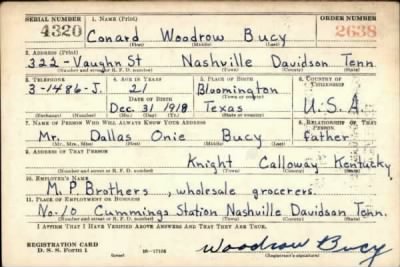 SERIAL NUMBER 1. NAME (Print) ORDER NUMBER
4320 Conard Woodrow Bucy 2638
(First) (Middle) (Last)
2. ADDRESS (Print)
322-Vaughn St Nashville Davidson Tenn.
(Number and street or R. F. D. number) (Town) (County) (State)
3. TELEPHONE 4. AGE IN YEARS 5. PLACE OF BIRTH 6. COUNTRY OF CITIZENSHIP
3-1486-J. 21 Bloomington
DATE OF BIRTH (Town or county)
Dec. 31 1918 Texas U.S.A.
(Exchange) (Number) (Mo.) (Day) (Yr.) (State or country)
7. NAME OF PERSON WHO WILL ALWAYS KNOW YOUR ADDRESS 8. RELATIONSHIP OF THAT PERSON
Mr. Dallas Onie Bucy father
(Mr., Mrs., Miss) (First) (Middle) (Last)
9. ADDRESS OF THAT PERSON
Knight Calloway Kentucky
(Number and street or R. F. D. number) (Town) (County) (State)
10. EMPLOYER'S NAME
M. P. Brothers, wholesale grocerers.
11. PLACE OF EMPLOYMENT OR BUSINESS
No-10 Cummings Station Nashville Davidson Tenn.
(Number and street or R. F. D. number) (Town) (County) (State)
I AFFIRM THAT I HAVE VERIFIED ABOVE ANSWERS AND THAT THEY ARE TRUE.
REGISTRATION CARD
D. S. S. Form 1 16-17105 Woodrow Bucy
(Registrant's signature)